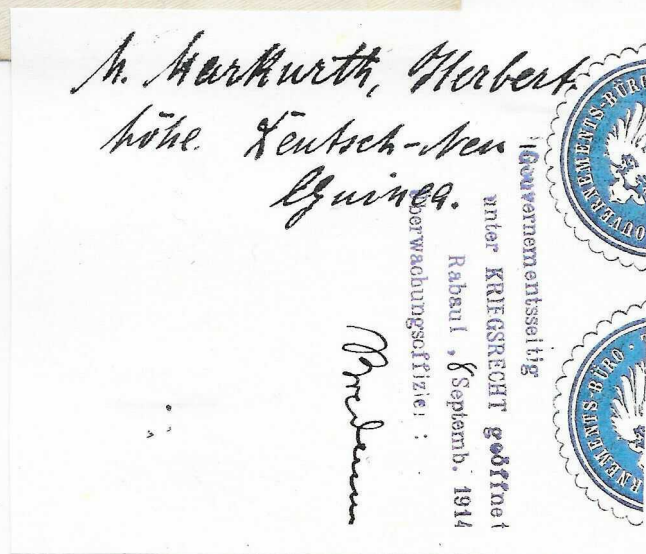 h. Markurth, Herbert
höhe. Deutsch-Neu
Guinea.
Gouvernementsseitig
unter KRIEGSRECHT geöffnet
Rabaul , 8 Septemb. 1914
Überwachungsoffizier :
GOUVERNEMENTS-BÜRO
RNEMENTS-BÜRO